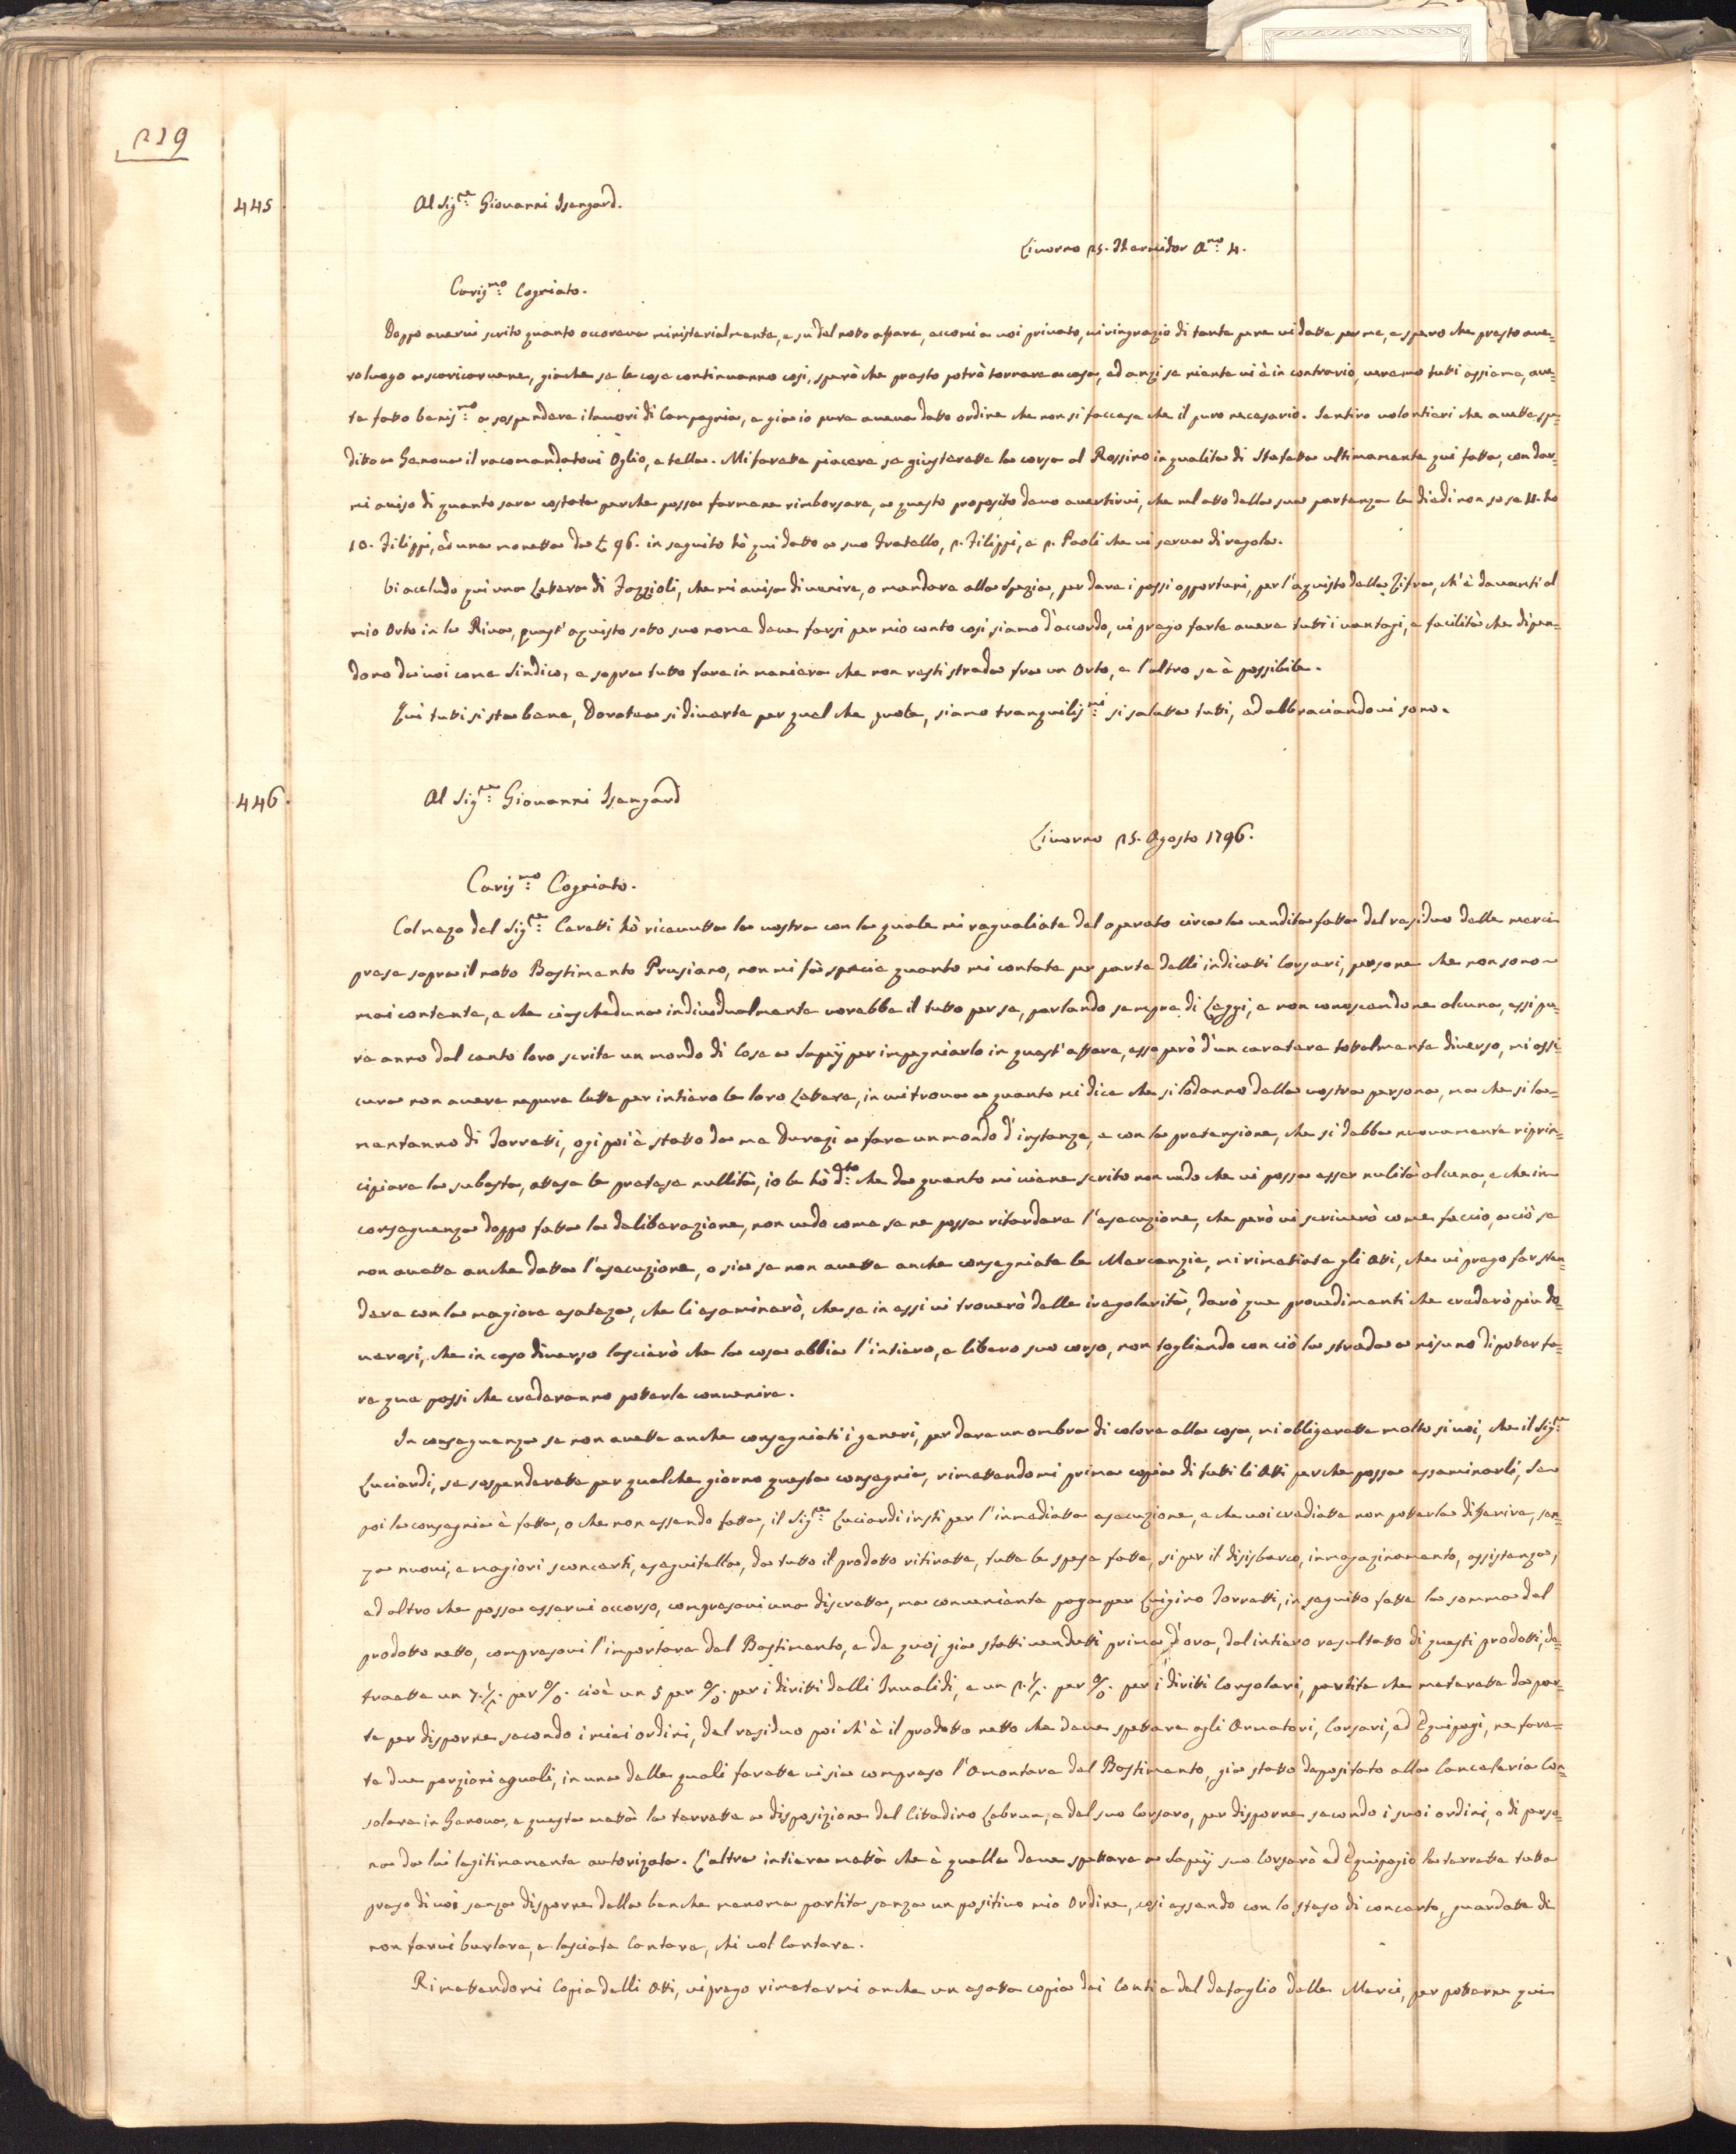 219
445
Al Sig.re Giovanni Isengard.
Livorno 25. Thermidor A.mo 4.
Caris.mo Cogniato.
Doppo avervi scrito quanto occoreva ministerialmente, e su del notto affare, eccomi a voi privato, vi ringrazio di tante pene vi datte per me, e spero che presto ave-
ro luogo a scaricarvene, gia che se le cose continuanno cosi, sperò che presto potrò tornare a casa, ed anzi se niente vi è in contrario, veremo tutti assieme, ave-
te fatto benis.mo a sospendere i lavori di Campagnia, e gia io pure aveva datto ordine che non si faccese che il puro necesario. Sentiro volontieri che avette spe-
dito a Genova il racomandatovi Oglio, e tella. Mi farette piacere se giusterette la corsa al Rossino in qualita di Stafetta ultimamente qui fatta, con dar-
mi aviso di quanto sara costata perche possa farmene rimborsare, a questo proposito devo avertirvi, che nel atto della sua partenza le diedi non so se 4. ho
10. Filippi, ed una monetta da £ 96. in seguito hò qui datto a suo Fratello, 2. Filippi, e 2. Paoli che vi serva di regola.
Vi accludo qui una Lettera di Fazzioli, che mi avisa di venire, o mandare alla Spezia, per dare i passi opportuni, per l'aquisto della Zifra, ch'è davanti al
mio Orto in la Riva, quest'aquisto sotto suo nome deve farsi per mio conto cosi siamo d'accordo, vi prego farle avere tutti i vantagi, e facilità che dipen-
dono da voi come Sindico, e sopra tutto fare in maniera che non resti strada fra un Orto, e l'altro se è possibile.
Qui tutti si sta bene, Dorotea si diverte per quel che puole, siamo tranquilis.mi si saluta tutti, ed abbraciandovi sono.
446.
Al Sig.re Giovanni Isengard
Livorno 25. Agosto 1796.
Caris.mo Cogniato.
Col mezo del Sig.re Ceretti hò ricevutta la vostra con la quale mi ragualiate del operato circa la vendita fatta del residuo delle merci
prese sopra il notto Bastimento Prusiano, non mi fà specie quanto mi contate per parte delli indicatti Corsari, persone che non sono
mai contente, e che ciascheduna individualmente vorebbe il tutto per se, parlando sempre di Leggi, e non conoscendone alcuna, essi pu-
re anno dal canto loro scrite un mondo di Cose a Sapej per impegniarlo in quest'affare, esso però d'un caratere tottalmente diverso, mi assi-
cura non avere nepure lette per intiero le loro Lettere, in cui trova a quanto mi dice che si lodanno della vostra persona, ma che si la-
mentanno di Torretti, ogi poi è statto da me Durazi a fare un mondo d'instanze, e con la pretensione, che si debba nuovamente riprin-
cipiare la subasta, attese le pretese nullità, io le hò d.to che da quanto mi viene scrito non vedo che vi possa esser nulità alcuna, e che in
conseguenza doppo fatta la deliberazione, non vedo come se ne possa ritardare l'esecuzione, che però vi scriverò come faccio, a ciò se
non avette anche datta l'esecuzione, o sia se non avette anche consegniate le Mercanzie, mi rimetiate gli Atti, che vi prego far sten-
dere con la magiore esateza, che li esaminerò, che se in essi vi troverò delle iregolarità, darò que provedimenti che crederò piu do-
verosi, che in caso diverso lascierò che la cosa abbia l'intiero, e libero suo corso, non togliendo con ciò la strada a nisuno di potter fa-
re que passi che crederanno potterle convenire.
In conseguenza se non avette anche consegniati i generi, per dare un ombra di colore alla cosa, mi obligerette molto si voi, che il Sig.re
Luciardi, se sospenderette per qualche giorno questa consegnia, rimettendomi prima copia di tutti li Atti perche possa essaminarli, Se
poi la consegnia è fatta, o che non essendo fatta, il Sig.re Luciardi insti per l'inmediatta esecuzione, e che voi crediatte non potterla differire, sen-
za nuovi, e magiori sconcerti, eseguitella, da tutto il prodotto ritiratte, tutte le spese fatte, si per il disisbarco, inmagazinamento, assistenza,
ed altro che possa esservi occorso, compresovi una discretta, ma conveniente paga per Luigino Torretti, in seguitto fatte la somma del
prodotto netto, compresovi l'importare del Bastimento, e de quoj gia statti vendutti prima d'ora, dal intiero resultatto di questi prodotti, de-
traette un 7.1/2. per %. cioè un 5 per %. per i diritti delli Invalidi, e un 2.1/2. per %. per i diritti Consolari, partite che meterette da par-
te per disporne secondo i miei ordini, del residuo poi ch'è il prodotto netto che deve spettare agli Armatori, Corsari, ed Equipagi, ne fare-
te due porzioni eguali, in una delle quali farette vi sia compreso l'Amontare del Bastimento, gia statto depositato alla Cancelaria Con-
solare in Genova, e questa mettà la terrette a disposizione del Cittadino Lebrun, e del suo Corsaro, per disporne secondo i suoi ordini, o di perso-
na da lui legitimamente autorizata. L'altra intiera mettà che è quella deve spettare a Sapej suo Corsarò ed Equipagio la terrette tutta
preso di voi senza disporne della benche menoma partita senza un positivo mio Ordine, cosi essendo con lo steso di concerto, guardatte di
non farvi burlare, e lasciate Cantare, chi vol Cantare.
Rimettendomi Copia delli Atti, vi prego rimetermi anche un esatta copia dei Conti e del detaglio delle Merci, per potterne qui